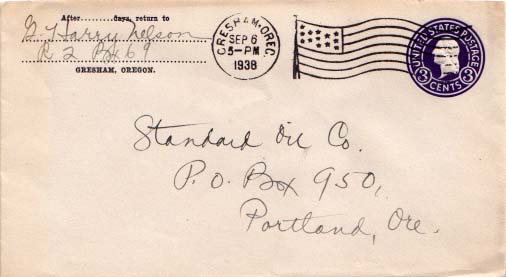 After..........days, return to
G. Harry Nelson
R 2 Box 69
GRESHAM, OREGON.
GRESHAM, OREG.
SEP 6
5-PM
1938
UNITED STATES POSTAGE
3 CENTS 3
Standard Oil Co.
P. O. Box 950,
Portland, Ore.